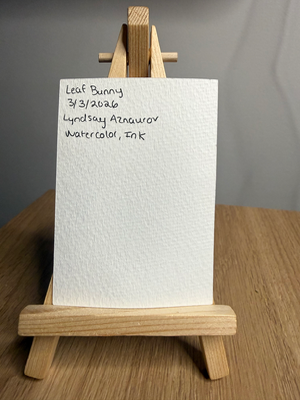 Leaf Bunny
3/3/2026
Lyndsay Aznaurov
Watercolor, Ink